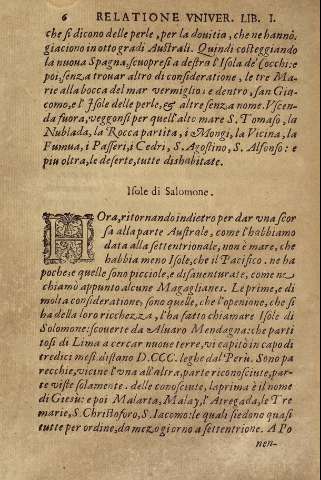 6 RELATIONE VNIVER. LIB. I.
che si dicono delle perle, per la douitia, che ne hannò,
giaciono in otto gradi Australi. Quindi costeggiando
la nuoua Spagna, scuopresi a destra l'Isola de' Cocchi: e
poi, senza trouar altro di consideratione, le tre Ma-
rie alla bocca del mar vermiglio: e dentro, san Gia-
como, e l'Isole delle perle, & altre senza nome. Vscen-
da fuora, veggonsi per quell'alto mare S. Tomaso, la
Nublada, la Rocca partita, i Mongi, la Vicina, la
Fumua, i Passeri, i Cedri, S. Agostino, S. Alfonso: e
piu oltra, le deserte, tutte dishabitate.
Isole di Salomone.
HOra, ritornando indietro per dar vna scor
sa alla parte Australe, come l'habbiamo
data alla settentrionale, non è mare, che
habbia meno Isole, che il Pacifico. ne ha
poche: e quelle sono picciole, e disauenturate, come ne
chiamò appunto alcune Magaglianes. Le prime, e di
molta consideratione, sono quelle, che l'openione, che si
ha della loro ricchezza, l'ha fatto chiamare Isole di
Solomone: scouerte da Aluaro Mendagna: che parti
tosi di Lima a cercar nuoue terre, vi capitò in capo di
tredici mesi distano D.CCC. leghe dal Perù. Sono pa
recchie, vicine l'vna all'altra, parte riconosciute, par-
te viste solamente. delle conosciute, la prima è il nome
di Giesù: e poi Malarta, Malay, l'Atregada, le Tre
marie, S. Christoforo, S. Iacomo: le quali siedono quasi
tutte per ordine, da mezogiorno a settentrione. A Po
nen-